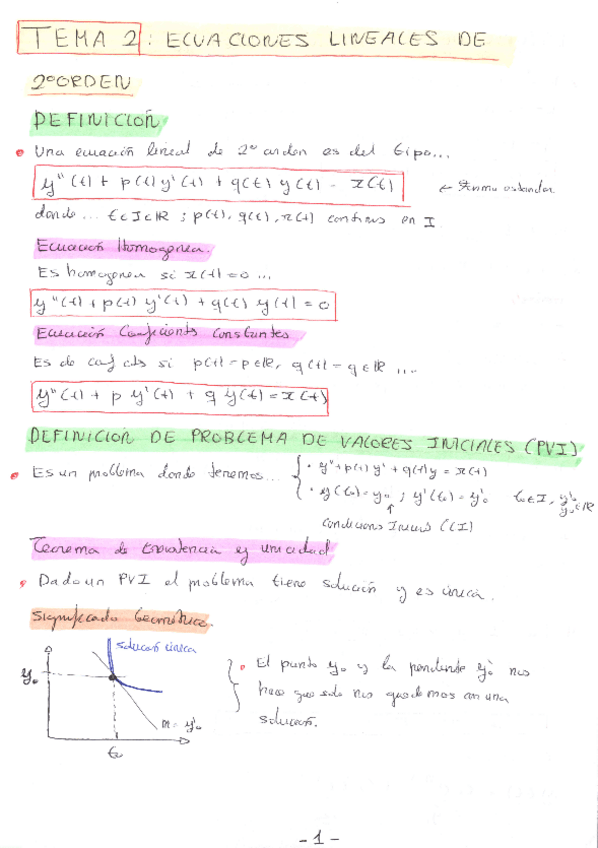 TEMA 2: ECUACIONES LINEALES DE
2º ORDEN
DEFINICIÓN
• Una ecuación lineal de 2º orden es del tipo...
y''(t) + p(t) y'(t) + q(t) y(t) = r(t) ← Forma estandar
donde ... t∈I⊂ℝ ; p(t), q(t), r(t) continuas en I
Ecuación Homogenea.
Es homogenea si r(t) = 0 ...
y''(t) + p(t) y'(t) + q(t) y(t) = 0
Ecuación Coeficientes Constantes
Es de coef cts si p(t) = p∈ℝ, q(t) = q∈ℝ ...
y''(t) + p y'(t) + q y(t) = r(t)
DEFINICIÓN DE PROBLEMA DE VALORES INICIALES (PVI)
• Es un problema donde tenemos... { • y''+p(t) y' + q(t)y = r(t)
• y(t₀) = y₀ ; y'(t₀) = y'₀ t₀∈I, y'₀, y₀∈ℝ
↑
Condiciones Iniciales (CI)
Teorema de Existencia y unicidad
• Dado un PVI el problema tiene solución y es única.
Significado Geométrico.
solución única
y₀
m = y'₀
t₀
• El punto y₀ y la pendiente y'₀ nos
hace que solo nos quedemos con una
solución.
- 1 -